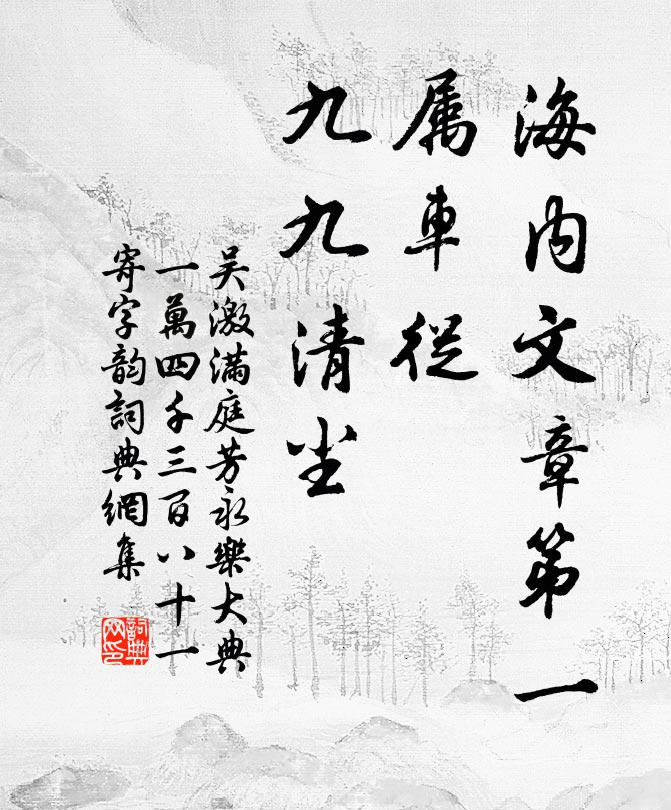 海内文章第一
属車從
九九清尘
吴激满庭芳永樂大典
一萬四千三百八十一
寄字韵詞典網集
詞典网印